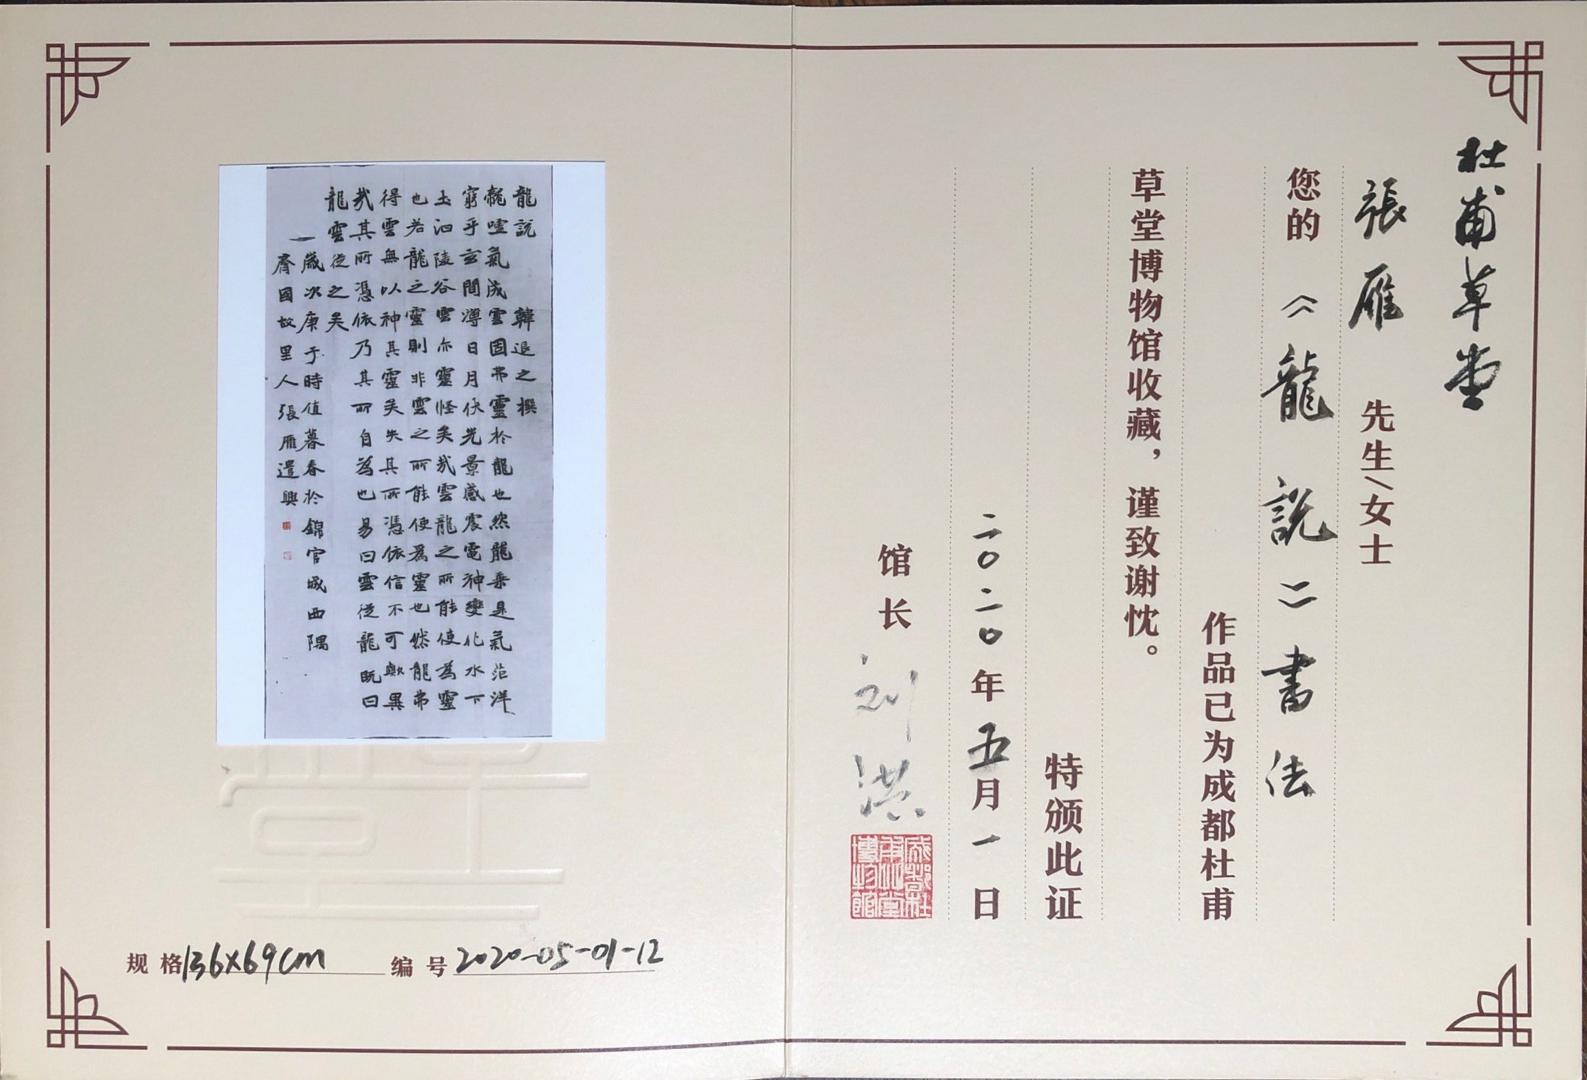 杜甫草堂
張雁 先生/女士
您的《龍説》書法
作品已为成都杜甫
草堂博物馆收藏，谨致谢忱。
特颁此证
二〇二〇年五月一日
馆长 刘洪
成都杜甫草堂博物館
龍説 韓退之撰
龍噓氣成雲固弗靈於龍也然龍乘是氣茫洋
窮乎玄間薄日月伏光景感震電神變化水下
土汩陵谷雲亦靈怪矣哉雲龍之所能使為靈
也若龍之靈則非雲之所能使為靈也然龍弗
得雲無以神其靈矣失其所憑依信不可歟異
哉其所憑依乃其所自為也易曰雲從龍既曰
龍雲從之矣
歲次庚子時值暮春於錦官城西隅
齊國故里人張雁遣興
规格 136x69cm 编号 2020-05-01-12